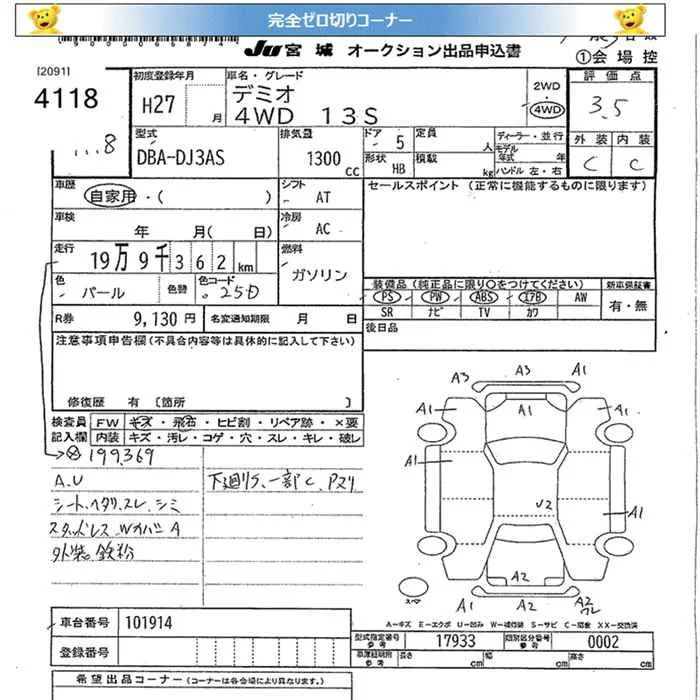 完全ゼロ切りコーナー
JU 宮城 オークション出品申込書
①会場控
[2091]
4118
初度登録年月
H27 月
車名・グレード
デミオ
4WD 13S
2WD
4WD
評価点
3.5
外装 内装
C C
型式
DBA-DJ3AS
排気量
1300 CC
ドア 5
形状 HB
定員 人
積載 kg
ディーラー・並行
モデル年式 年
ハンドル 左・右
車歴
自家用・( )
シフト
AT
セールスポイント (正常に機能するものに限ります)
車検
年 月( 日)
冷房
AC
走行
19万9千362km
燃料
ガソリン
色
パール
色替
色コード
25D
装備品 (純正品に限り○をつけてください)
新車保証書
PS PW ABS エアB AW
SR ナビ TV カワ
有・無
R券 9,130円
名変通知期限 月 日
後日品
注意事項申告欄(不具合内容等は具体的に記入して下さい)
修復歴 有 [箇所 ]
検査員
記入欄
FW キズ・飛石・ヒビ割・リペア跡・×要
内装 キズ・汚レ・コゲ・穴・スレ・キレ・破レ
199,369
A.U
シート、ヘタリ、スレ、シミ
スタッドレス、Wカバー A
外装、鉄粉
下廻りS、一部C、Pヌリ
A3 A3 A1
A1 A1 A1
A1
U2
A1
A2
A1 A2 A2
ワレ
スペア
A-キズ E-エクボ U-凹み W-補修跡 S-サビ C-腐食 XX-交換済
車台番号 101914
登録番号
型式指定番号 参考 17933 類別区分番号 参考 0002
車庫証明用 参考 長さ cm 幅 cm 高さ cm
希望出品コーナー (コーナーは各会場により異なります。)